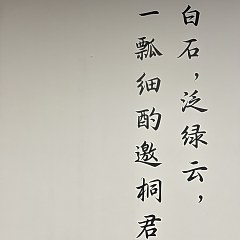 白石，泛绿云，
一瓢细酌邀桐君